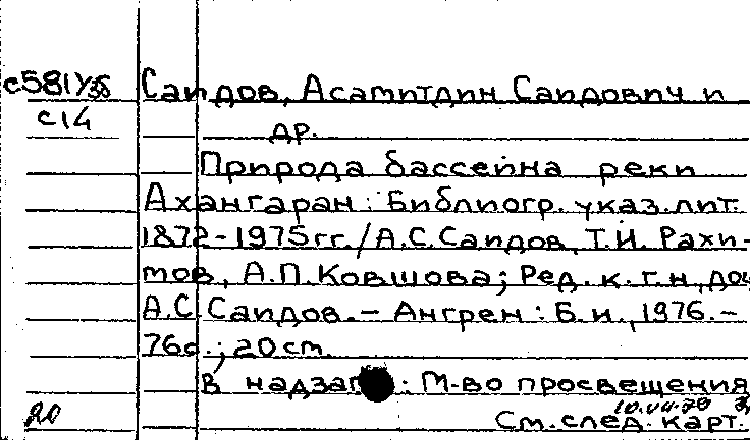 с581Узб
с14
Саидов, Асамитдин Саидович и
др.
Природа бассейна реки
Ахангаран: Библиогр. указ. лит.
1872-1975гг./А.С.Саидов, Т.И. Рахи-
мов, А.П.Ковшова; Ред. к.г.н., доц
А.С. Саидов. – Ангрен: Б.и., 1976. –
76с.; 20см.
В надзаг.: М-во просвещения
20
См. след. карт.